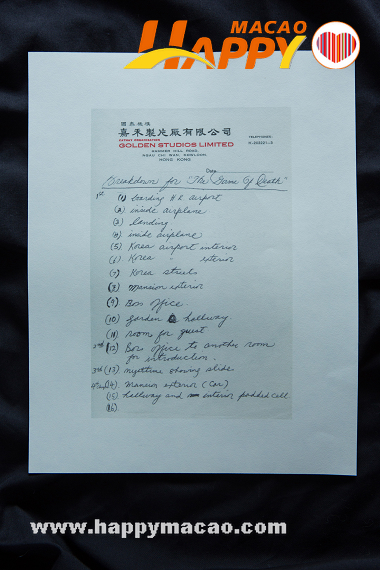 MACAO
HAPPY
國泰機構
嘉禾製片廠有限公司
CATHAY ORGANISATION
GOLDEN STUDIOS LIMITED
HAMMER HILL ROAD,
NGAU CHI WAN, KOWLOON,
HONG KONG
TELEPHONES:
Breakdown for "The Game Of Death"
1st (1) boarding H K airport
(2) inside airplane
(3) landing
(4) inside airplane
(5) Korea airport interior
(6) Korea " exterior
(7) Korea streets
(8) mansion exterior
(9) Boss office.
(10) garden hallway.
(11) room for guest
(12) Boss office to another room
for introduction.
3rd (13) nighttime showing slide
(14) mansion exterior (Car)
(15) hallway and interior padded cell
(16)
www.happymacao.com